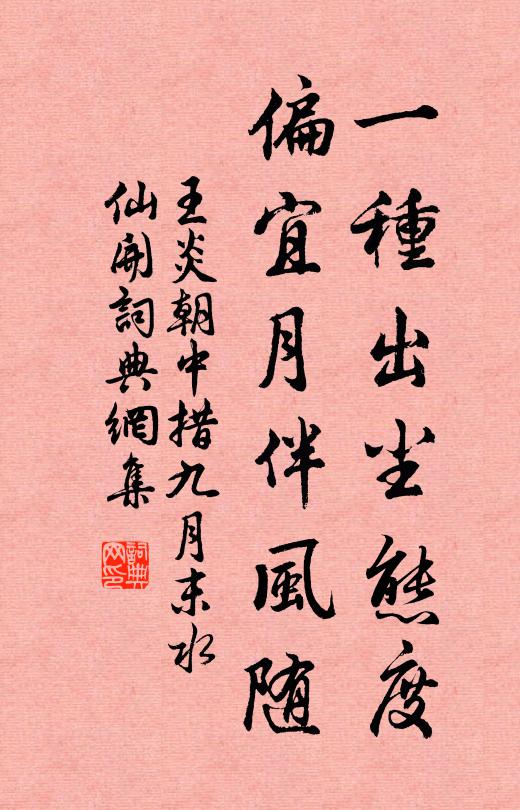 一種出尘態度
偏宜月伴風随
王炎朝中措九月末水
仙開詞典網集
詞典
网印